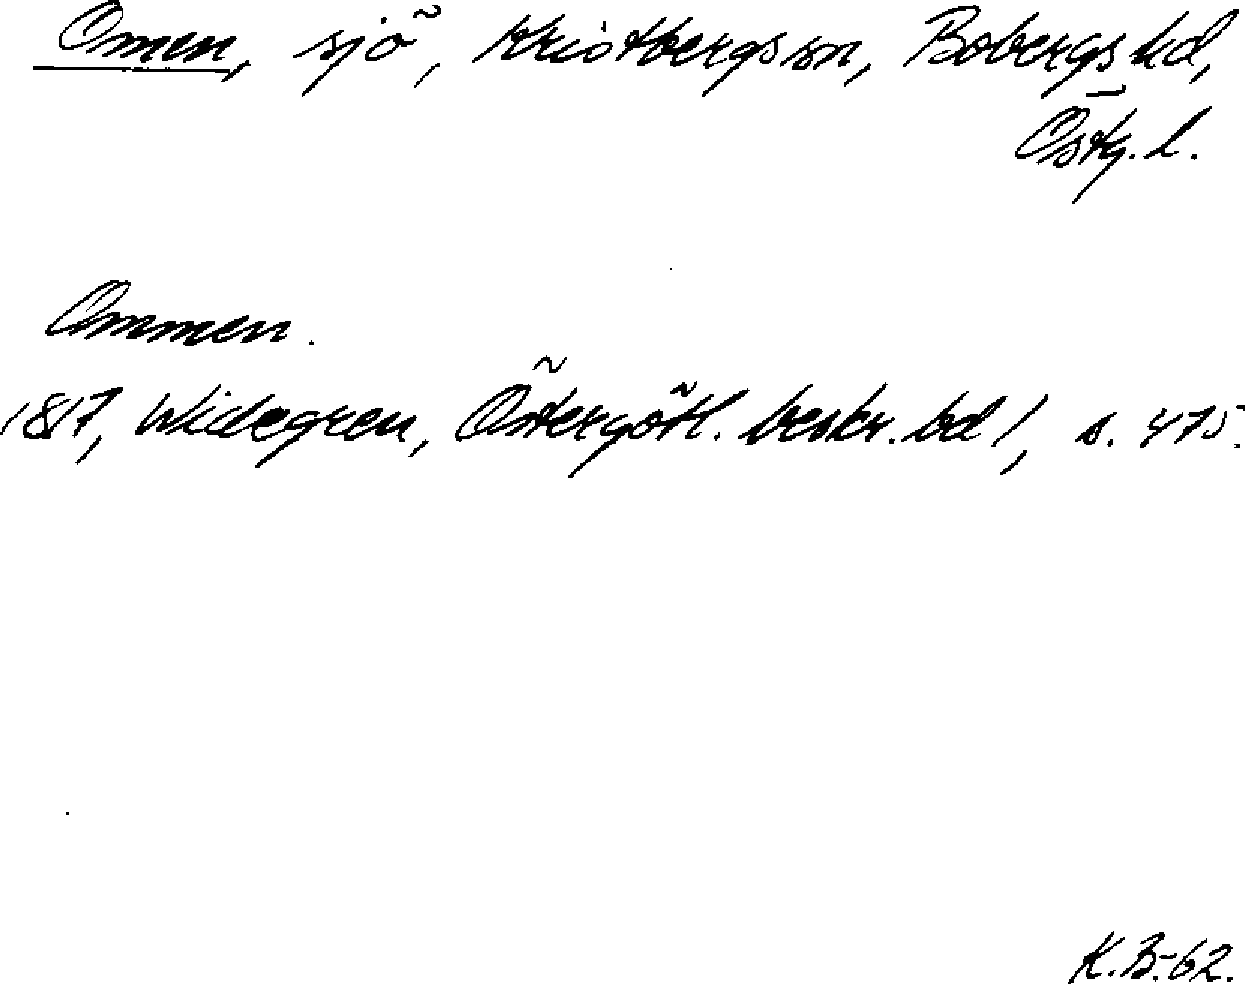 Omen, sjö, Kristbergs sn, Bobergs hd,
Östg. l.
Ommen.
1817, Widegren, Östergötl. beskr. bd 1, s. 475.
K.B-62.